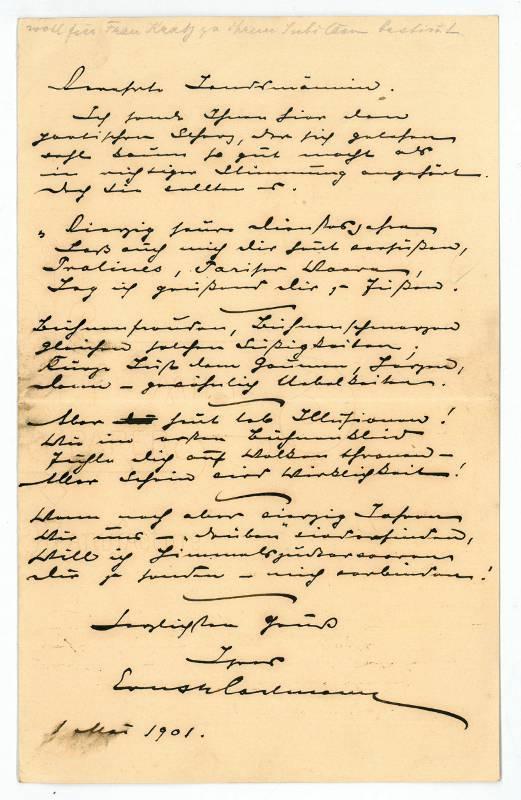 wohl für Frau Kratz zu ihrem Jubiläum bestimmt
Verehrte Landsmännin.
Ich sende Ihnen hier den
poetischen Scherz, der sich gelesen
wohl kaum so gut macht als
in richtiger Stimmung angehört.
Doch Sie wollten es.
„Vierzig saure Dienstesjahre
Laß auch mich Dir heut versüßen,
Pralinés, Pariser Waare,
Leg ich grüßend Dir zu Füßen.
Bühnenfreuden, Bühnenschmerzen
gleichen solchen Süßigkeiten;
Kurze Lust dem Gaumen, Herzen,
Dann – gewöhnlich Uebelkeiten.
Aber heut leb Illusionen!
Wie im ersten Bühnenkleid
Fühle Dich auf Wolken thronen –
Aller Schein wird Wirklichkeit!
Wenn nach aber vierzig Jahren
Wir uns – „drüben“ wiederfinden,
Will ich Himmelszuckerwaaren
Dir zu senden – mich verbinden!
Herzlichsten Gruß
Ihres
Ernst
1 Mai 1901.